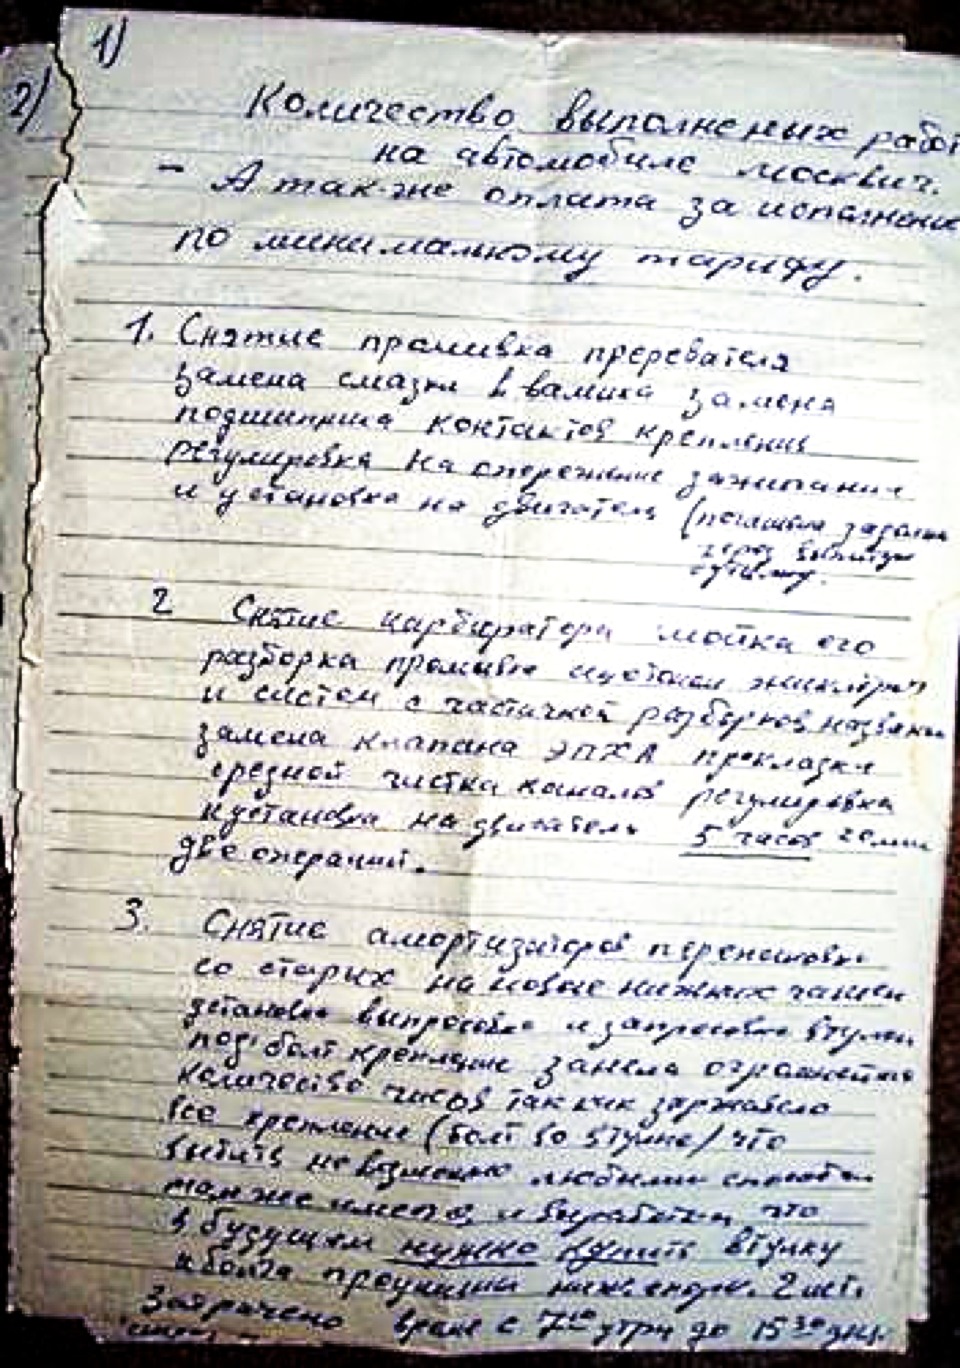 1)
2)
Количество выполненых работ
на автомобиле москвич.
- А так-же оплата за исполнение
по минималному тарифу.
1. Снятие промивка
замена смазки замена
подшипника контактов крепление
регулировка на опережение зажигания
и установка на двигатель (
через
бутылку.
2 Снятие карбюратора мойка его
разборка промивка
и систем с частичной разборкой
замена клапана ЭПХХ прокладки
средной чистка каналов регулировка
и установка на двигатель 5 часов
две операций.
3. Снятие амортизаторов перестановка
со старых на новые нижних чашек
установка выпресовка и запресовка втулки
под болт крепление заняла
количество часов так как заржавело
все крепление (болт во втулке) что
выбить невозможно любыми
там же имеется и выработка что
в будущем нужно купить втулку
и болта проушины 2 шт.
Затрачено время с 7 утра до 15 30 дня.